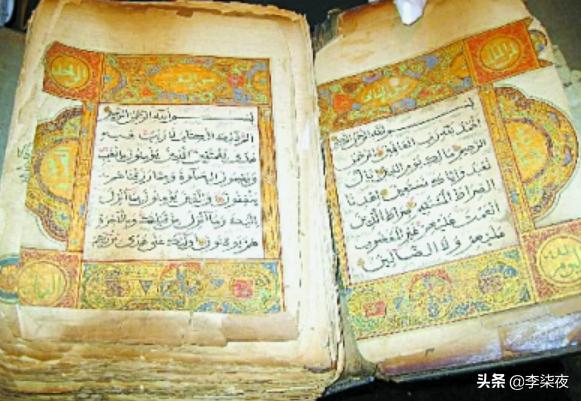 بسم الله الرحمن الرحيم
الحمد لله رب العالمين الرحمن
الرحيم مالك يوم الدين اياك
نعبد واياك نستعين اهدنا
الصراط المستقيم صراط الذين
انعمت عليهم غير المغضوب
عليهم ولا الضالين
بسم الله الرحمن الرحيم
الم ذلك الكتاب لا ريب فيه
هدى للمتقين الذين يؤمنون بالغيب
ويقيمون الصلوة ومما رزقناهم
ينفقون والذين يؤمنون بما انزل
اليك وما انزل من قبلك وبالاخرة
هم يوقنون اولئك على هدى من ربهم
头条 @李柒夜